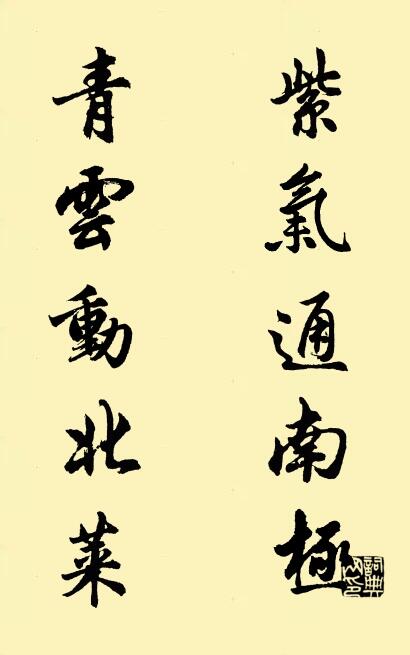 紫氣通南極
青雲動北萊
詞典